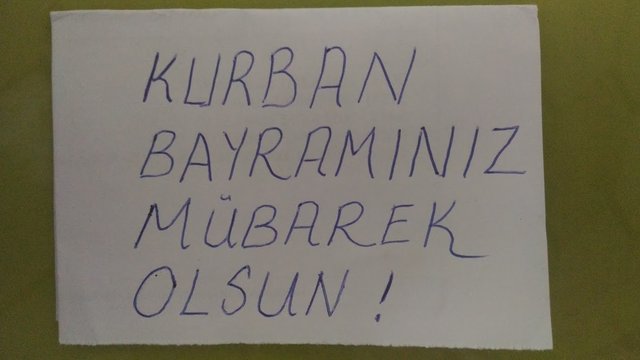 KURBAN
BAYRAMINIZ
MÜBAREK
OLSUN !